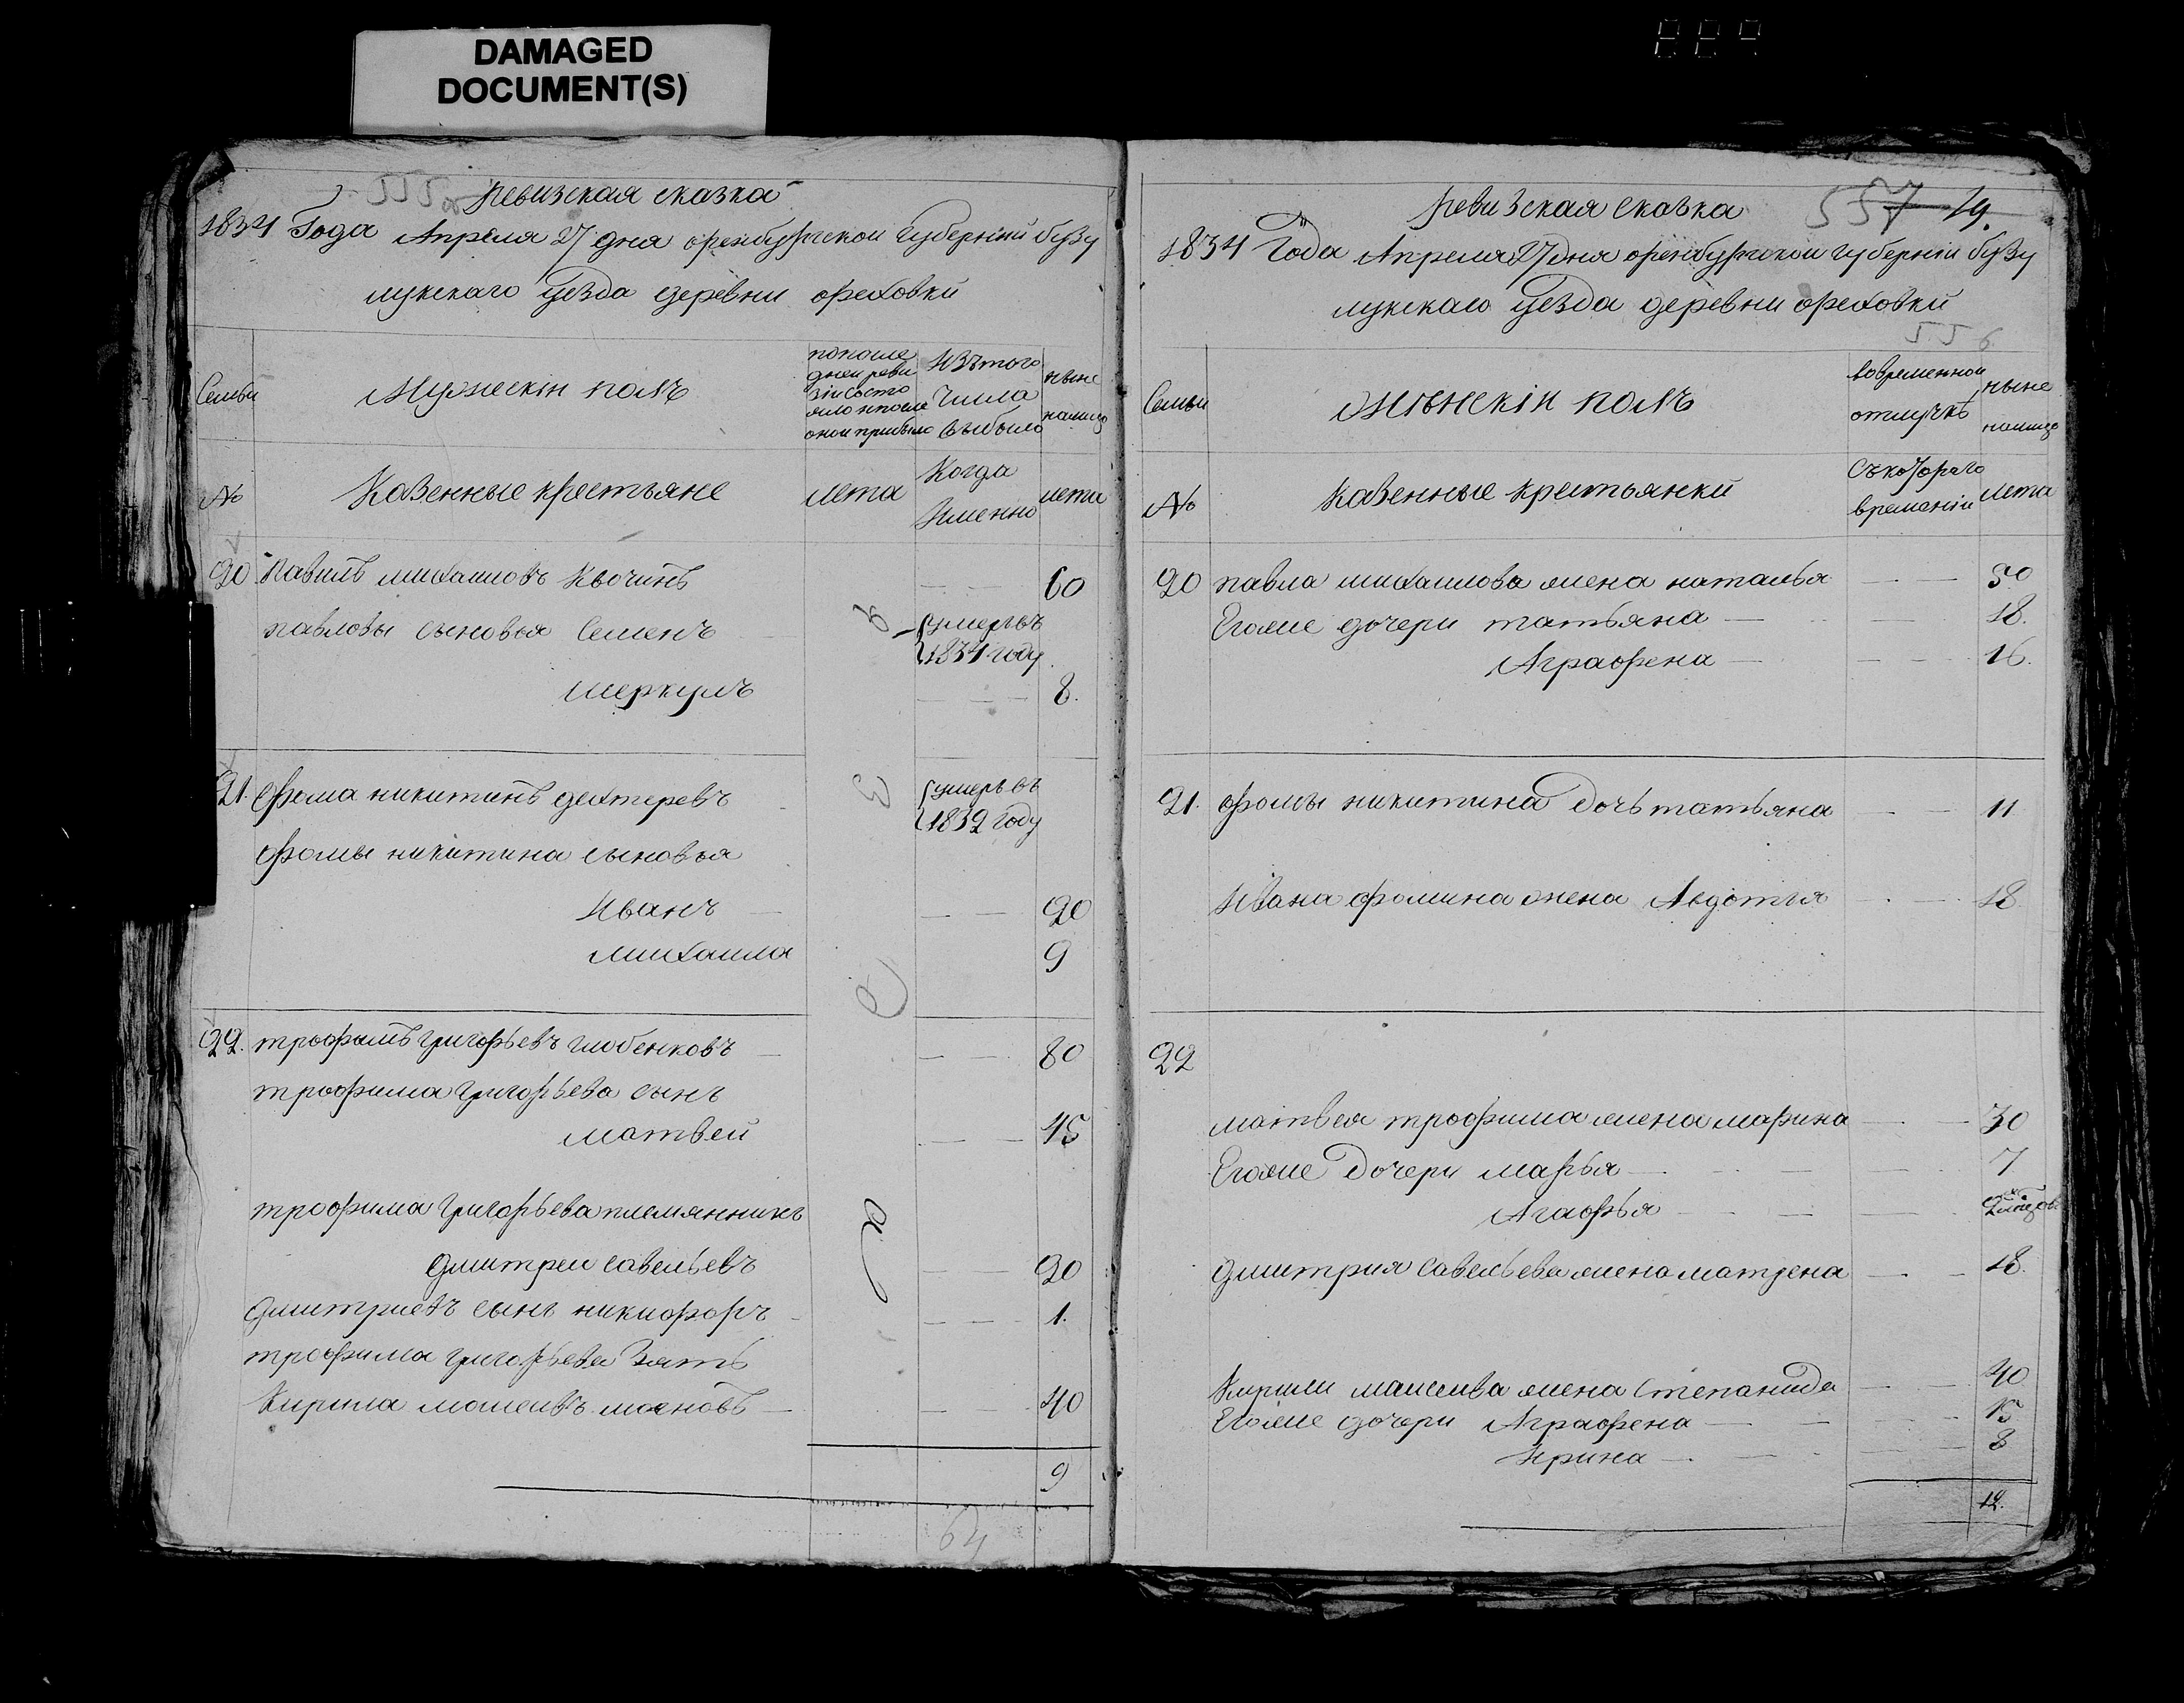 DAMAGED
DOCUMENT(S)
555
Ревизская сказка
1834 Года Апреля 27 дня оренбургской губернии бузу
лукскаго уезда деревни ореховки
Семьи
Мужескiи полъ
попосле
дней реви
зiи состо
яло ипосле
онои прибыло
Изътого
Числа
Выбыло
ныне
налицо
№
Казенные крестьяне
лета
Когда
Именно
лета
20 Павилъ михаиловъ Квочинъ 60
павловы сыновья Семенъ умеръвъ
1834 году
меркулъ 8.
21. Фома никитинъ дехтеревъ умеръ въ
1832 году
Фомы никитина сыновья
Иванъ 20
михаила 9
22. трофимъ григорьевъ 80
трофима григорьева сынъ
матвей 45
трофима григорьева племянникъ
дмитреи савельевъ 20
дмитриевъ сынъ никифоръ 1.
трофима григорьева Зять
Кирила 40
9
64
Ревизская Сказка 557 19.
1834 Года Апреля 27 дня оренбургской губернiи бузу
лукскаго уезда деревни ореховки
556
Семьи
Женскiи полъ
вовременной
отлучкъ
ныне
налицо
№
Казенные крестьянки
Съкотораго
времении
лета
20 павла михаилова жена наталья 50
Егоже дочери татьяна 18.
Аграфена 16.
21. фомы никитина дочь татьяна 11
Ивана фомина жена Авдотья 18
22
матвея трофима жена марина 30
Егоже дочери марья 7
Агафья
дмитрия савельева жена матрена 18.
Кирилы жена Степанида 40
Егоже дочери Аграфена 15
Ирина 8
12.